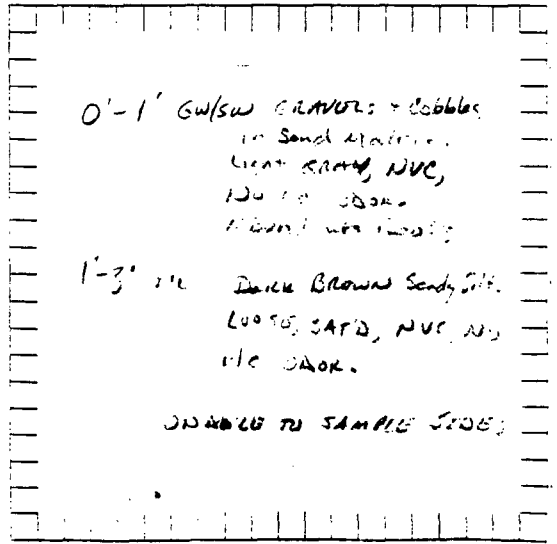 0'-1' GW/SW GRAVELS + Cobbles
in Sand Matrix.
Light GRAY, NVC,
No H/C ODOR.
1'-3' ML Dark BROWN Sandy Silt.
LOOSE, SAT'D, NVC, NO
H/C ODOR.
UNABLE TO SAMPLE SIDES